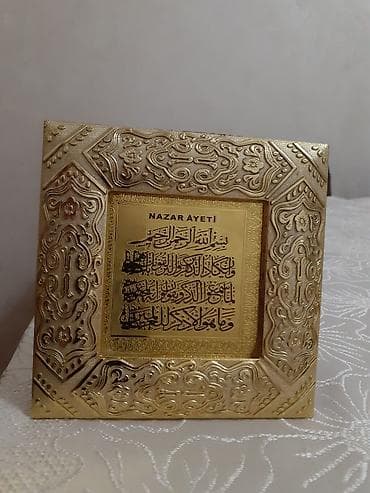 NAZAR ÂYETİ
بسم الله الرحمن الرحيم
وان يكاد الذين كفروا ليزلقونك بابصارهم
لما سمعوا الذكر ويقولون انه لمجنون
وما هو الا ذكر للعالمين